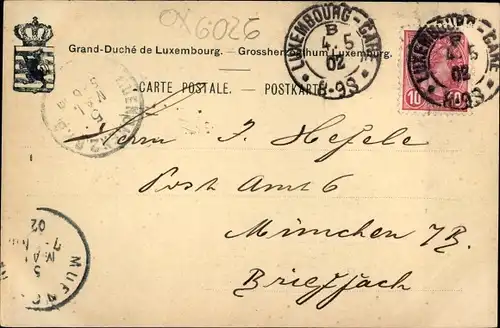 OX6026
Grand-Duché de Luxembourg. - Grossherzogthum Luxemburg.
CARTE POSTALE. - POSTKARTE.
LUXEMBOURG-GARE
B
4.5
02
8-9S
LUXEMBOURG-GARE
B
4 5
02
8-9S
10 10
Herrn J. Hefele
Post Amt 6
München 7B.
Brieffach
MUEN
5
MAI
7-
02